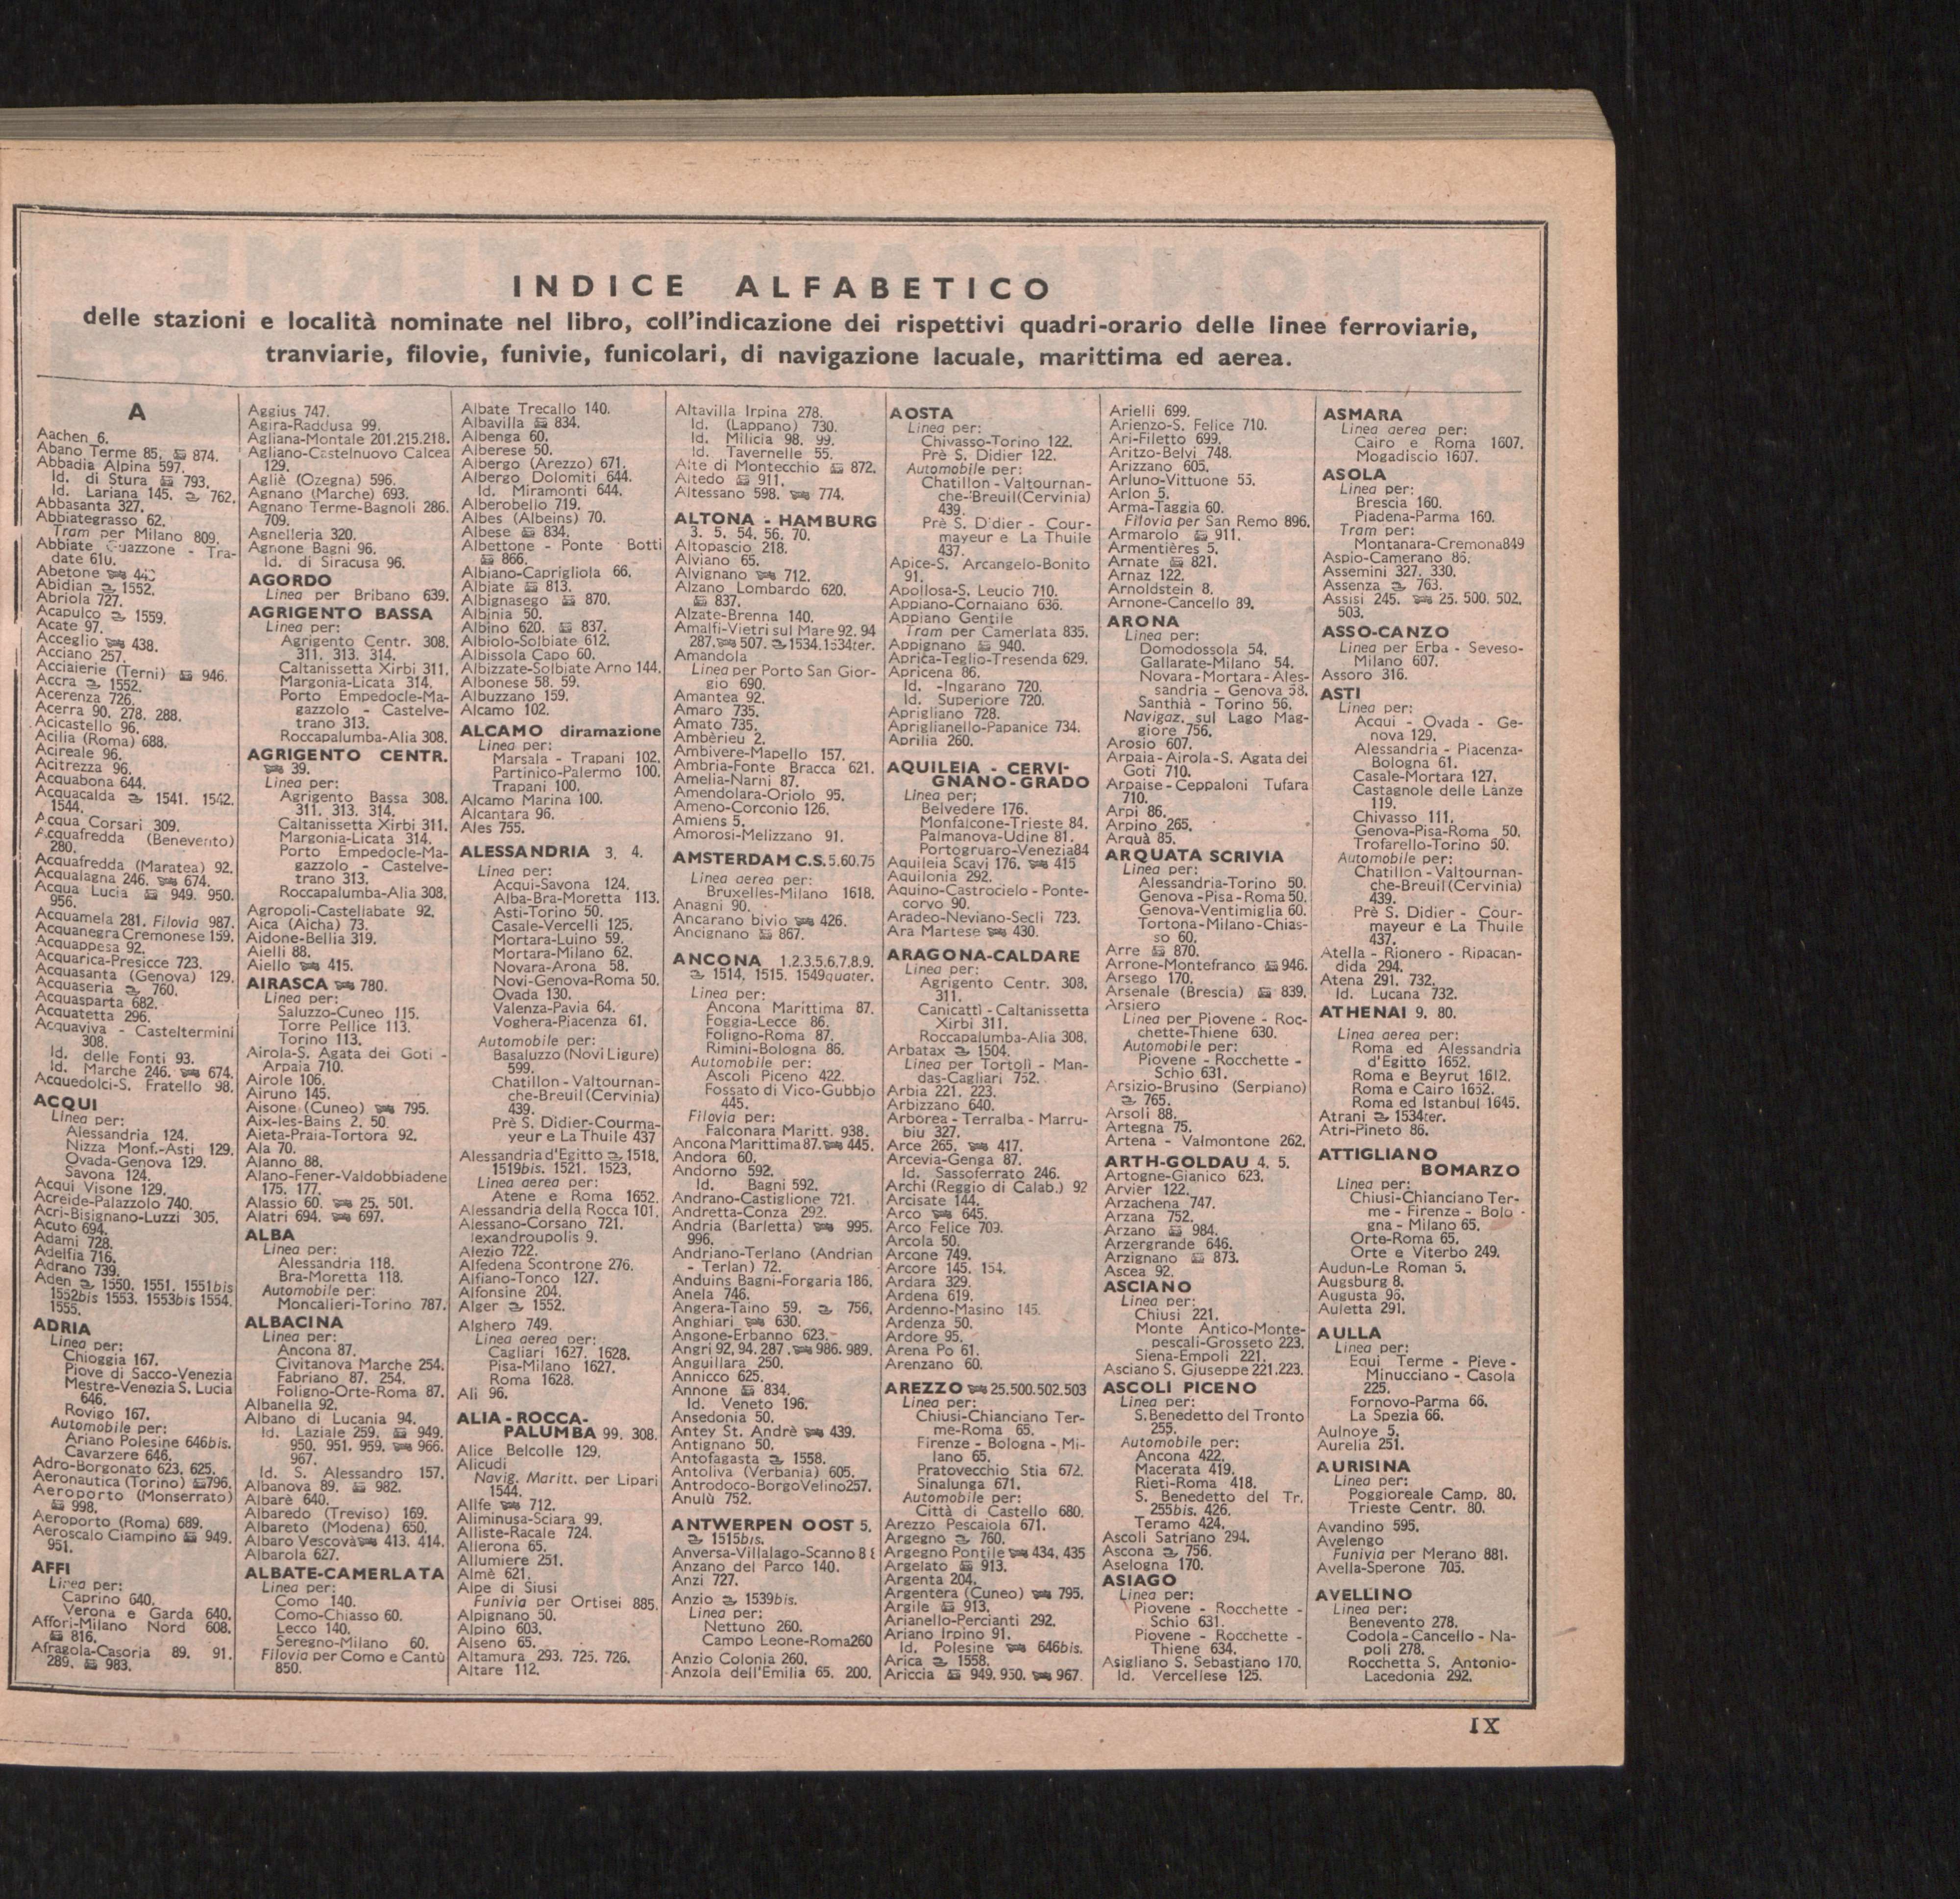 INDICE ALFABETICO
delle stazioni e località nominate nel libro, coll'indicazione dei rispettivi quadri-orario delle linee ferroviarie,
tranviarie, filovie, funivie, funicolari, di navigazione lacuale, marittima ed aerea.
A
Aachen 6.
Abano Terme 85. 874.
Abbadia Alpina 597.
Id. di Stura 793.
Id. Lariana 145. 762.
Abbasanta 327.
Abbiategrasso 62.
Tram per Milano 809.
Abbiate Guazzone - Tra-
date 610.
Abetone
Abidian 1552.
Abriola 727.
Acapulco 1559.
Acate 97.
Acceglio 438.
Acciano 257.
Acciaierie (Terni) 946.
Accra 1552.
Acerenza 726.
Acerra 90. 278. 288.
Acicastello 96.
Acilia (Roma) 688.
Acireale 96.
Acitrezza 96.
Acquabona 644.
Acquacalda 1541. 1542.
1544.
Acqua Corsari 309.
Acquafredda (Benevento)
280.
Acquafredda (Maratea) 92.
Acqualagna 246. 674.
Acqua Lucia 949. 950.
956.
Acquamela 281. Filovia 987.
Acquanegra Cremonese 159.
Acquappesa 92.
Acquarica-Presicce 723.
Acquasanta (Genova) 129.
Acquaseria 760.
Acquasparta 682.
Acquatetta 296.
Acquaviva - Casteltermini
308.
Id. delle Fonti 93.
Id. Marche 246. 674.
Acquedolci-S. Fratello 98.
ACQUI
Linea per:
Alessandria 124.
Nizza Monf.-Asti 129.
Ovada-Genova 129.
Savona 124.
Acqui Visone 129.
Acreide-Palazzolo 740.
Acri-Bisignano-Luzzi 305.
Acuto 694.
Adami 728.
Adelfia 716.
Adrano 739.
Aden 1550. 1551. 1551bis
1552bis 1553. 1553bis 1554.
1555.
ADRIA
Linea per:
Chioggia 167.
Piove di Sacco-Venezia
Mestre-Venezia S. Lucia
646.
Rovigo 167.
Automobile per:
Ariano Polesine 646bis.
Cavarzere 646.
Adro-Borgonato 623. 625.
Aeronautica (Torino) 796.
Aeroporto (Monserrato)
998.
Aeroporto (Roma) 689.
Aeroscalo Ciampino 949.
951.
AFFI
Linea per:
Caprino 640.
Verona e Garda 640.
Affori-Milano Nord 608.
816.
Afragola-Casoria 89. 91.
289. 983.
Aggius 747.
Agira-Raddusa 99.
Agliana-Montale 201.215.218.
Agliano-Castelnuovo Calcea
129.
Agliè (Ozegna) 596.
Agnano (Marche) 693.
Agnano Terme-Bagnoli 286.
709.
Agnelleria 320.
Agnone Bagni 96.
Id. di Siracusa 96.
AGORDO
Linea per Bribano 639.
AGRIGENTO BASSA
Linea per:
Agrigento Centr. 308.
311. 313. 314.
Caltanissetta Xirbi 311.
Margonia-Licata 314.
Porto Empedocle-Ma-
gazzolo - Castelve-
trano 313.
Roccapalumba-Alia 308.
AGRIGENTO CENTR.
39.
Linea per:
Agrigento Bassa 308.
311. 313. 314.
Caltanissetta Xirbi 311.
Margonia-Licata 314.
Porto Empedocle-Ma-
gazzolo - Castelve-
trano 313.
Roccapalumba-Alia 308.
Agropoli-Castellabate 92.
Aica (Aicha) 73.
Aidone-Bellia 319.
Aielli 88.
Aiello 415.
AIRASCA 780.
Linea per:
Saluzzo-Cuneo 115.
Torre Pellice 113.
Torino 113.
Airola-S. Agata dei Goti -
Arpaia 710.
Airole 106.
Airuno 145.
Aisone (Cuneo) 795.
Aix-les-Bains 2. 50.
Aieta-Praia-Tortora 92.
Ala 70.
Alanno 88.
Alano-Fener-Valdobbiadene
175. 177.
Alassio 60. 25. 501.
Alatri 694. 697.
ALBA
Linea per:
Alessandria 118.
Bra-Moretta 118.
Automobile per:
Moncalieri-Torino 787.
ALBACINA
Linea per:
Ancona 87.
Civitanova Marche 254.
Fabriano 87. 254.
Foligno-Orte-Roma 87.
Albanella 92.
Albano di Lucania 94.
Id. Laziale 259. 949.
950. 951. 959. 966.
967.
Id. S. Alessandro 157.
Albanova 89. 982.
Albarè 640.
Albaredo (Treviso) 169.
Albareto (Modena) 650.
Albaro Vescovà 413. 414.
Albarola 627.
ALBATE-CAMERLATA
Linea per:
Como 140.
Como-Chiasso 60.
Lecco 140.
Seregno-Milano 60.
Filovia per Como e Cantù
850.
Albate Trecallo 140.
Albavilla 834.
Albenga 60.
Alberese 50.
Albergo (Arezzo) 671.
Albergo Dolomiti 644.
Id. Miramonti 644.
Alberobello 719.
Albes (Albeins) 70.
Albese 834.
Albettone - Ponte Botti
866.
Albiano-Caprigliola 66.
Albiate 813.
Albignasego 870.
Albinia 50.
Albino 620. 837.
Albiolo-Solbiate 612.
Albissola Capo 60.
Albizzate-Solbiate Arno 144.
Albonese 58. 59.
Albuzzano 159.
Alcamo 102.
ALCAMO diramazione
Linea per:
Marsala - Trapani 102.
Partinico-Palermo 100.
Trapani 100.
Alcamo Marina 100.
Alcantara 96.
Ales 755.
ALESSANDRIA 3. 4.
Linea per:
Acqui-Savona 124.
Alba-Bra-Moretta 113.
Asti-Torino 50.
Casale-Vercelli 125.
Mortara-Luino 59.
Mortara-Milano 62.
Novara-Arona 58.
Novi-Genova-Roma 50.
Ovada 130.
Valenza-Pavia 64.
Voghera-Piacenza 61.
Automobile per:
Basaluzzo (Novi Ligure)
599.
Chatillon - Valtournan-
che-Breuil (Cervinia)
439.
Prè S. Didier-Courma-
yeur e La Thuile 437
Alessandria d'Egitto 1518.
1519bis. 1521. 1523.
Linea aerea per:
Atene e Roma 1652.
Alessandria della Rocca 101.
Alessano-Corsano 721.
lexandroupolis 9.
Alezio 722.
Alfedena Scontrone 276.
Alfiano-Tonco 127.
Alfonsine 204.
Alger 1552.
Alghero 749.
Linea aerea per:
Cagliari 1627. 1628.
Pisa-Milano 1627.
Roma 1628.
Ali 96.
ALIA - ROCCA-
PALUMBA 99. 308.
Alice Belcolle 129.
Alicudi
Navig. Maritt. per Lipari
1544.
Alife 712.
Aliminusa-Sciara 99.
Alliste-Racale 724.
Allerona 65.
Allumiere 251.
Almè 621.
Alpe di Siusi
Funivia per Ortisei 885.
Alpignano 50.
Alpino 603.
Alseno 65.
Altamura 293. 725. 726.
Altare 112.
Altavilla Irpina 278.
Id. (Lappano) 730.
Id. Milicia 98. 99.
Id. Tavernelle 55.
Alte di Montecchio 872.
Altedo 911.
Altessano 598. 774.
ALTONA - HAMBURG
3. 5. 54. 56. 70.
Altopascio 218.
Alviano 65.
Alvignano 712.
Alzano Lombardo 620.
837.
Alzate-Brenna 140.
Amalfi-Vietri sul Mare 92. 94
287. 507. 1534.1534ter.
Amandola
Linea per Porto San Gior-
gio 690.
Amantea 92.
Amaro 735.
Amato 735.
Ambèrieu 2.
Ambivere-Mapello 157.
Ambria-Fonte Bracca 621.
Amelia-Narni 87.
Amendolara-Oriolo 95.
Ameno-Corconio 126.
Amiens 5.
Amorosi-Melizzano 91.
AMSTERDAM C.S. 5.60.75
Linea aerea per:
Bruxelles-Milano 1618.
Anagni 90.
Ancarano bivio 426.
Ancignano 867.
ANCONA 1.2.3.5.6.7.8.9.
1514. 1515. 1549quater.
Linea per:
Ancona Marittima 87.
Foggia-Lecce 86.
Foligno-Roma 87.
Rimini-Bologna 86.
Automobile per:
Ascoli Piceno 422.
Fossato di Vico-Gubbio
445.
Filovia per:
Falconara Maritt. 938.
Ancona Marittima 87. 445.
Andora 60.
Andorno 592.
Id. Bagni 592.
Andrano-Castiglione 721.
Andretta-Conza 292.
Andria (Barletta) 995.
996.
Andriano-Terlano (Andrian
- Terlan) 72.
Anduins Bagni-Forgaria 186.
Anela 746.
Angera-Taino 59. 756.
Anghiari 630.
Angone-Erbanno 623.
Angri 92. 94. 287. 986. 989.
Anguillara 250.
Annicco 625.
Annone 834.
Id. Veneto 196.
Ansedonia 50.
Antey St. Andrè 439.
Antignano 50.
Antofagasta 1558.
Antoliva (Verbania) 605.
Antrodoco-Borgo Velino 257.
Anulù 752.
ANTWERPEN OOST 5.
1515bis.
Anversa-Villalago-Scanno 8
Anzano del Parco 140.
Anzi 727.
Anzio 1539bis.
Linea per:
Nettuno 260.
Campo Leone-Roma260
Anzio Colonia 260.
Anzola dell'Emilia 65. 200.
AOSTA
Linea per:
Chivasso-Torino 122.
Prè S. Didier 122.
Automobile per:
Chatillon - Valtournan-
che-Breuil (Cervinia)
439.
Prè S. Didier - Cour-
mayeur e La Thuile
437.
Apice-S. Arcangelo-Bonito
91.
Apollosa-S. Leucio 710.
Appiano-Cornaiano 636.
Appiano Gentile
Tram per Camerlata 835.
Appignano 940.
Aprica-Teglio-Tresenda 629.
Apricena 86.
Id. -Ingarano 720.
Id. Superiore 720.
Aprigliano 728.
Apriglianello-Papanice 734.
Aprilia 260.
AQUILEIA - CERVI-
GNANO - GRADO
Linea per:
Belvedere 176.
Monfalcone-Trieste 84.
Palmanova-Udine 81.
Portogruaro-Venezia84
Aquileia Scavi 176. 415
Aquilonia 292.
Aquino-Castrocielo - Ponte-
corvo 90.
Aradeo-Neviano-Seclì 723.
Ara Martese 430.
ARAGONA-CALDARE
Linea per:
Agrigento Centr. 308.
311.
Canicattì - Caltanissetta
Xirbi 311.
Roccapalumba-Alia 308.
Arbatax 1504.
Linea per Tortolì - Man-
das-Cagliari 752.
Arbia 221. 223.
Arbizzano 640.
Arborea - Terralba - Marru-
biu 327.
Arce 265. 417.
Arcevia-Genga 87.
Id. Sassoferrato 246.
Archi (Reggio di Calab.) 92
Arcisate 144.
Arco 645.
Arco Felice 709.
Arcola 50.
Arcone 749.
Arcore 145. 154.
Ardara 329.
Ardena 619.
Ardenno-Masino 145.
Ardenza 50.
Ardore 95.
Arena Po 61.
Arenzano 60.
AREZZO 25.500.502.503
Linea per:
Chiusi-Chianciano Ter-
me-Roma 65.
Firenze - Bologna - Mi-
lano 65.
Pratovecchio Stia 672.
Sinalunga 671.
Automobile per:
Città di Castello 680.
Arezzo Pescaiola 671.
Argegno 760.
Argegno Pontile 434. 435
Argelato 913.
Argenta 204.
Argentera (Cuneo) 795.
Argile 913.
Arianello-Percianti 292.
Ariano Irpino 91.
Id. Polesine 646bis.
Arica 1558.
Ariccia 949. 950. 967.
Arielli 699.
Arienzo-S. Felice 710.
Ari-Filetto 699.
Aritzo-Belvi 748.
Arizzano 605.
Arluno-Vittuone 55.
Arlon 5.
Arma-Taggia 60.
Filovia per San Remo 896.
Armarolo 911.
Armentières 5.
Arnate 821.
Arnaz 122.
Arnoldstein 8.
Arnone-Cancello 89.
ARONA
Linea per:
Domodossola 54.
Gallarate-Milano 54.
Novara - Mortara - Ales-
sandria - Genova 58.
Santhià - Torino 56.
Navigaz. sul Lago Mag-
giore 756.
Arosio 607.
Arpaia - Airola - S. Agata dei
Goti 710.
Arpaise - Ceppaloni Tufara
710.
Arpi 86.
Arpino 265.
Arquà 85.
ARQUATA SCRIVIA
Linea per:
Alessandria-Torino 50.
Genova - Pisa - Roma 50.
Genova-Ventimiglia 60.
Tortona - Milano - Chias-
so 60.
Arre 870.
Arrone-Montefranco 946.
Arsego 170.
Arsenale (Brescia) 839.
Arsiero
Linea per Piovene - Roc-
chette-Thiene 630.
Automobile per:
Piovene - Rocchette -
Schio 631.
Arsizio-Brusino (Serpiano)
765.
Arsoli 88.
Artegna 75.
Artena - Valmontone 262.
ARTH-GOLDAU 4. 5.
Artogne-Gianico 623.
Arvier 122.
Arzachena 747.
Arzana 752.
Arzano 984.
Arzergrande 646.
Arzignano 873.
Ascea 92.
ASCIANO
Linea per:
Chiusi 221.
Monte Antico-Monte-
pescali-Grosseto 223.
Siena-Empoli 221.
Asciano S. Giuseppe 221.223.
ASCOLI PICENO
Linea per:
S. Benedetto del Tronto
255.
Automobile per:
Ancona 422.
Macerata 419.
Rieti-Roma 418.
S. Benedetto del Tr.
255bis. 426.
Teramo 424.
Ascoli Satriano 294.
Ascona 756.
Aselogna 170.
ASIAGO
Linea per:
Piovene - Rocchette -
Schio 631.
Piovene - Rocchette -
Thiene 634.
Asigliano S. Sebastiano 170.
Id. Vercellese 125.
ASMARA
Linea aerea per:
Cairo e Roma 1607.
Mogadiscio 1607.
ASOLA
Linea per:
Brescia 160.
Piadena-Parma 160.
Tram per:
Montanara-Cremona849
Aspio-Camerano 86.
Assemini 327. 330.
Assenza 763.
Assisi 245. 25. 500. 502.
503.
ASSO-CANZO
Linea per Erba - Seveso-
Milano 607.
Assoro 316.
ASTI
Linea per:
Acqui - Ovada - Ge-
nova 129.
Alessandria - Piacenza-
Bologna 61.
Casale-Mortara 127.
Castagnole delle Lanze
119.
Chivasso 111.
Genova-Pisa-Roma 50.
Trofarello-Torino 50.
Automobile per:
Chatillon - Valtournan-
che-Breuil (Cervinia)
439.
Prè S. Didier - Cour-
mayeur e La Thuile
437.
Atella - Rionero - Ripacan-
dida 294.
Atena 291. 732.
Id. Lucana 732.
ATHENAI 9. 80.
Linea aerea per:
Roma ed Alessandria
d'Egitto 1652.
Roma e Beyrut 1612.
Roma e Cairo 1652.
Roma ed Istanbul 1645.
Atrani 1534ter.
Atri-Pineto 86.
ATTIGLIANO
BOMARZO
Linea per:
Chiusi-Chianciano Ter-
me - Firenze - Bolo -
gna - Milano 65.
Orte-Roma 65.
Orte e Viterbo 249.
Audun-Le Roman 5.
Augsburg 8.
Augusta 96.
Auletta 291.
AULLA
Linea per:
Equi Terme - Pieve -
Minucciano - Casola
225.
Fornovo-Parma 66.
La Spezia 66.
Aulnoye 5.
Aurelia 251.
AURISINA
Linea per:
Poggioreale Camp. 80.
Trieste Centr. 80.
Avandino 595.
Avelengo
Funivia per Merano 881.
Avella-Sperone 705.
AVELLINO
Linea per:
Benevento 278.
Codola - Cancello - Na-
poli 278.
Rocchetta S. Antonio-
Lacedonia 292.
IX